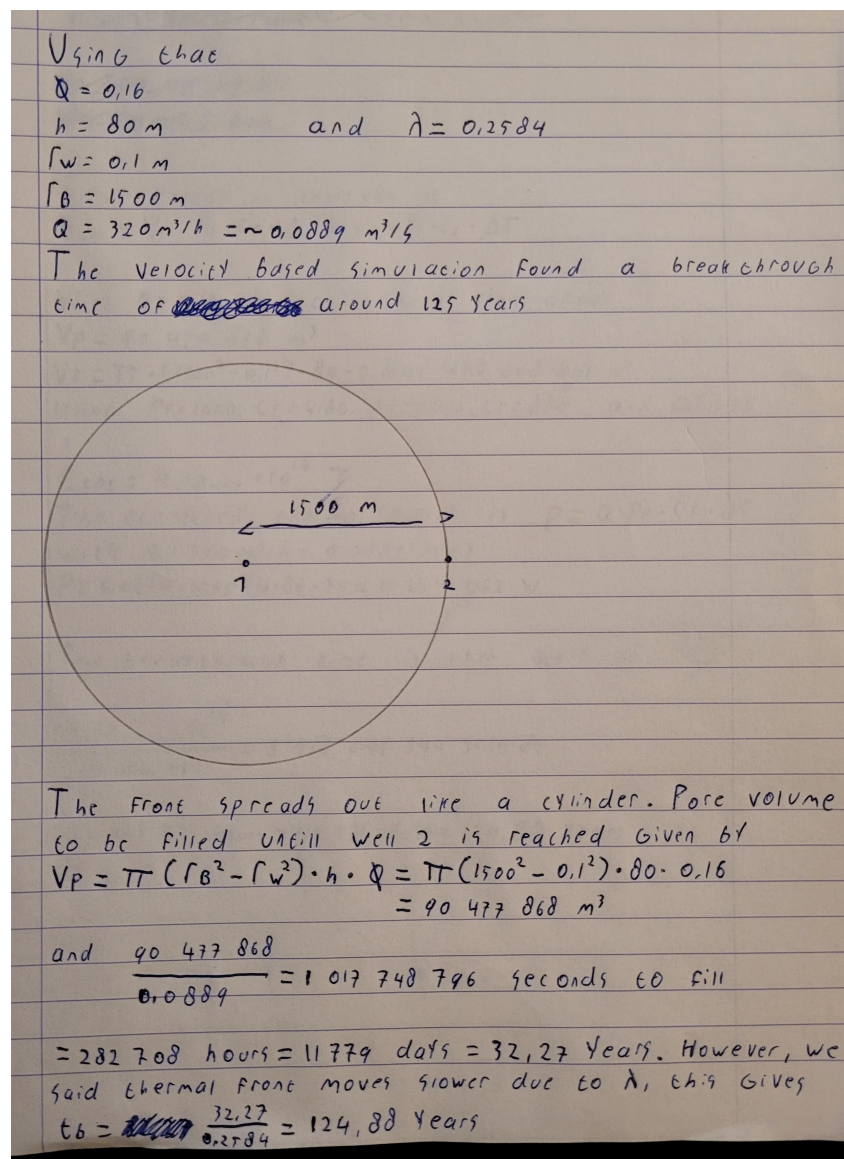 Using that
Φ = 0,16
h = 80 m and λ = 0,2584
rw = 0,1 m
rB = 1500 m
Q = 320 m³/h = ~ 0,0889 m³/s
The velocity based simulation found a breakthrough
time of around 125 years
1500 m
1 2
The front spreads out like a cylinder. Pore volume
to be filled untill well 2 is reached Given by
Vp = π (rB² - rw²) · h · Φ = π (1500² - 0,1²) · 80 · 0,16
= 90 477 868 m³
and 90 477 868 / 0,0889 = 1 017 748 796 seconds to fill
= 282 708 hours = 11 779 days = 32,27 Years. However, we
said thermal front moves slower due to λ, this Gives
tb = 32,27 / 0,2584 = 124,88 Years